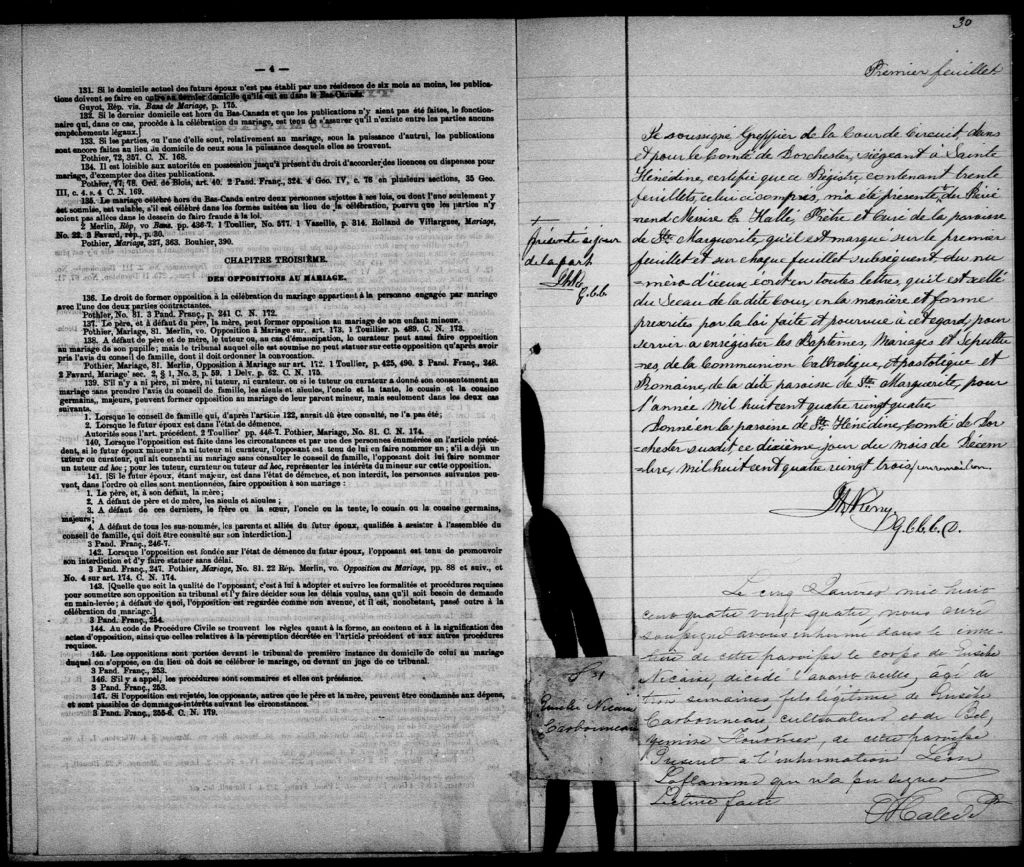 — 4 —
131. Si le domicile actuel des futurs époux n'est pas établi par une résidence de six mois au moins, les publica-
tions doivent se faire en outre au dernier domicile qu'ils ont eu dans le Bas-Canada.
Guyot, Rép. vis. Bans de Mariage, p. 175.
132. Si le dernier domicile est hors du Bas-Canada et que les publications n'y aient pas été faites, le fonction-
naire qui, dans ce cas, procède à la célébration du mariage, est tenu de s'assurer qu'il n'existe entre les parties aucuns
empêchements légaux.]
133. Si les parties, ou l'une d'elle sont, relativement au mariage, sous la puissance d'autrui, les publications
sont encore faites au lieu du domicile de ceux sous la puissance desquels elles se trouvent.
Pothier, 72, 357. C. N. 168.
134. Il est loisible aux autorités en possession jusqu'à présent du droit d'accorder des licences ou dispenses pour
mariage, d'exempter des dites publications.
Pothier, 77, 78. Ord. de Blois, art. 40. 2 Pand. Franç., 324. 4 Geo. IV, c. 76 en plusieurs sections, 35 Geo.
III, c. 4, s. 4 C. N. 169.
135. Le mariage célébré hors du Bas-Canada entre deux personnes sujettes à ses lois, ou dont l'une seulement y
est soumise, est valable, s'il est célébré dans les formes usitées au lieu de la célébration, pourvu que les parties n'y
soient pas allées dans le dessein de faire fraude à la loi.
2 Merlin, Rép, vo Bans. pp. 436-7. 1 Toullier, No. 577. 1 Vazeille, p. 314. Rolland de Villargues, Mariage,
No. 22. 3 Favard, rép., p. 30.
Pothier, Mariage, 327, 363. Bouhier, 390.
CHAPITRE TROISIÈME.
DES OPPOSITIONS AU MARIAGE.
136. Le droit de former opposition à la célébration du mariage appartient à la personne engagée par mariage
avec l'une des deux parties contractantes.
Pothier, No. 81. 3 Pand. Franç., p. 241 C. N. 172.
137. Le père, et à défaut du père, la mère, peut former opposition au mariage de son enfant mineur.
Pothier, Mariage, 81. Merlin, vo. Opposition à Mariage sur. art. 173. 1 Touillier. p. 489. C. N. 173.
138. A défaut de père et de mère, le tuteur ou, au cas d'émancipation, le curateur peut aussi faire opposition
au mariage de son pupille; mais le tribunal auquel elle est soumise ne peut statuer sur cette opposition qu'après avoir
pris l'avis du conseil de famille, dont il doit ordonner la convocation.
Pothier, Mariage, 81. Merlin, Opposition à Mariage sur art. 172. 1 Toullier, p. 425, 490. 3 Pand. Franç., 248.
2 Favard, Mariage' sec. 2, § 1, No. 3, p. 59. 1 Delv. p. 62. C. N. 175.
139. S'il n'y a ni père, ni mère, ni tuteur, ni curateur, ou si le tuteur ou curateur a donné son consentement au
mariage sans prendre l'avis du conseil de famille, les aieuls et aieules, l'oncle et la tante, le cousin et la cousine
germains,, majeurs, peuvent former opposition au mariage de leur parent mineur, mais seulement dans les deux cas
suivants.
1. Lorsque le conseil de famille qui, d'après l'article 122, aurait dû être consulté, ne l'a pas été;
2. Lorsque le futur époux est dans l'état de démence.
Autorités sous l'art. précédent. 2 Toullier pp. 446-7. Pothier, Mariage, No. 81. C N. 174.
140. Lorsque l'opposition est faite dans les circonstances et par une des personnes énumérées en l'article précé-
dent, si le futur époux mineur n'a ni tuteur ni curateur, l'opposant est tenu de lui en faire nommer un; s'il a déjà un
tuteur ou curateur, qui ait consenti au mariage sans consulter le conseil de famille, l'opposant doit lui faire nommer
un tuteur ad hoc; pour les tuteur, curateur ou tuteur ad hoc, représenter les intérêts du mineur sur cette opposition.
141. [Si le futur époux, étant majeur, est dans l'état de démence, et non interdit, les personnes suivantes peu-
vent, dans l'ordre où elles sont mentionnées, faire opposition à son mariage:
1. Le père, et, à son défaut, la mère;
2. A défaut de père et de mère, les aieuls et aieules;
3. A défaut de ces derniers, le frère ou la sœur, l'oncle ou la tente, le cousin ou la cousine germains,
majeurs;
4. A défaut de tous les sus-nommés, les parents et alliés du futur époux, qualifiés à assister à l'assemblée du
conseil de famille, qui doit être consulté sur son interdiction.]
3 Pand. Franç., 246-7.
142. Lorsque l'opposition est fondée sur l'état de démence du futur époux, l'opposant est tenu de promouvoir
son interdiction et d'y faire statuer sans délai.
3 Pand. Franç., 247. Pothier, Mariage, No. 81. 22 Rép. Merlin, vo. Opposition au Mariage, pp. 88 et suiv., et
No. 4 sur art. 174. C. N. 174.
143. [Quelle que soit la qualité de l'opposant, c'est à lui à adopter et suivre les formalités et procédures requises
pour soumettre son opposition au tribunal et l'y faire décider sous les délais voulus, sans qu'il soit besoin de demande
en main-levée; à défaut de quoi, l'opposition est regardée comme non avenue, et il est, nonobstant, passé outre à la
célébration du mariage.]
3 Pand. Franç., 254.
144. Au code de Procédure Civile se trouvent les règles quant à la forme, au contenu et à la signification des
actes d'opposition, ainsi que celles relatives à la péremption décrétée en l'article précédent et aux autres procédures
requises.
145. Les oppositions sont portées devant le tribunal de première instance du domicile de celui au mariage
duquel on s'oppose, ou du lieu où doit se célébrer le mariage, ou devant un juge de ce tribunal.
3 Pand. Franç., 253.
146. S'il y a appel, les procédures sont sommaires et elles ont préséance.
3 Pand. Franç., 253.
147. Si l'opposition est rejetée, les opposants, autres que le père et la mère, peuvent être condamnés aux dépens,
et sont passibles de dommages-intérêts suivant les circonstances.
3 Pand. Franç., 255-6. C. N. 179.
30
Premier feuillet
Je soussigné Greffier de la Cour de Circuit dans
et pour le Comté de Dorchester, siégeant à Sainte
Hénédine, certifie que ce Régistre, contenant trente
feuillets, celui ci compris, m'a été présenté, du Révé-
rend Messire L. Hallé, Prêtre et Curé de la paroisse
de Ste. Marguerite, qu'il est marqué sur le premier
feuillet et sur chaque feuillet subséquent du nu-
=méro d'iceux, écrit en toutes lettres, qu'il est scellé
du Sceau de la dite Cour, en la manière et forme
prescrites par la loi faite et pourvue à cet égard, pour
servir à enregistrer les Baptêmes, Mariages et Sépultu-
=res, de la Communion Catholique, Apostolique et
Romaine, de la dite paroisse de Ste. Marguerite, pour
l'année mil huit cent quatre vingt quatre
Donné en la paroisse de Ste. Hénédine, Comté de Dor-
=chester susdit, ce dixième jour du mois de Décem-
=bre, mil huit cent quatre vingt trois/
G.C.C.C.D.
+
Présenté ce jour
de la part
G.C.C.
S 1
Eusèbe Nicaise
Carbonneau
Le cinq Janvier mil huit
cent quatre vingt quatre, nous curé
soussigné avons inhumé dans le cime-
tière de cette paroisse le corps de Eusèbe
Nicaise, décédé l'avant veille, âgé de
trois semaines, fils légitime de Eusèbe
Carbonneau, cultivateur et de Bel,
zémire Fournier, de cette paroisse
Présent à l'inhumation Léon
Laflamme qui n'a pu signer
Lecture faite